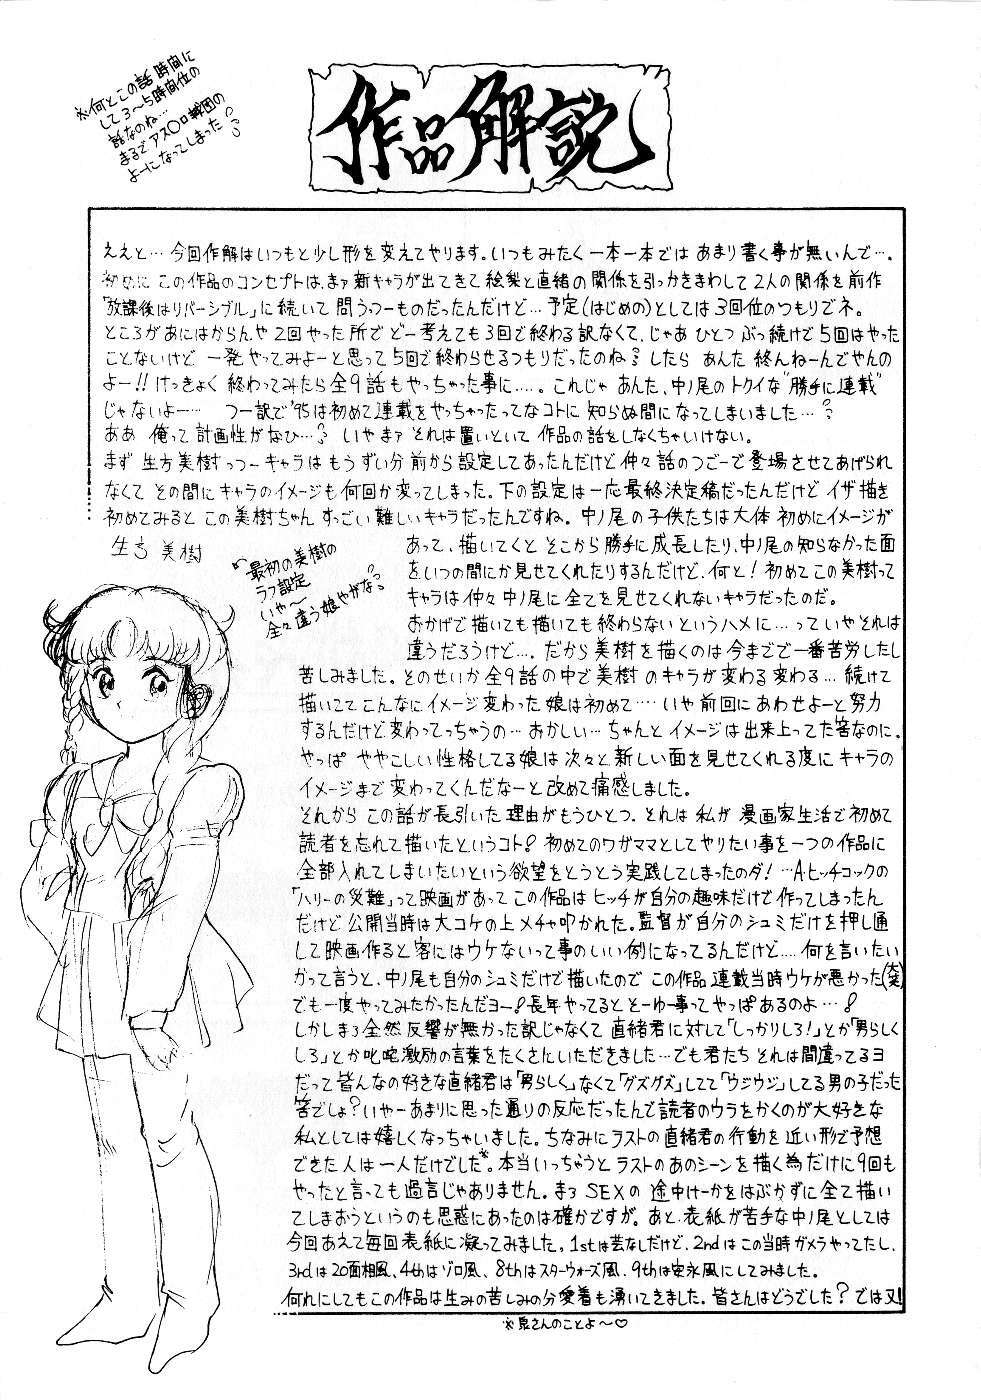 ※何とこの話 時間に
して3〜5時間位の
話なのね…
まるでアス〇ロ戦団の
よーになってしまった
作品解説
ええと…今回作解はいつもと少し形を変えてやります。いつもみたく一本一本では あまり書く事が無いんで…。
初めに この作品のコンセプトは、まァ新キャラが出てきて絵梨と直緒の関係を引っかきまわして2人の関係を前作
「放課後はリバーシブル」に続いて 問うつーものだったんだけど…予定(はじめの)としては3回位のつもりでネ。
ところがあにはからんや2回やった所でどー考えても3回で終わる訳なくて、じゃあひとつ ぶっ続けで5回はやった
ことないけど 一発やってみよーと思って5回で終わらせるつもりだったのね? したら あんた 終んねーんでやんの
よー!! けっきょく 終わってみたら全9話もやっちゃった事に……。これじゃ あんた、中ノ尾のトクイな"勝手に連載"
じゃないよー… つー訳で'95は初めて連載をやっちゃったってなコトに 知らぬ間になってしまいました…?
ああ 俺って計画性がなひ…? いやまァ それは置いといて 作品の話をしなくちゃいけない。
まず 生方美樹っつーキャラはもうずい分前から設定してあったんだけど仲々話のつごーで登場させてあげられ
なくて その間にキャラのイメージも何回か変ってしまった。下の設定は一応最終決定稿だったんだけど イザ描き
初めてみると この美樹ちゃん すっごい難しいキャラだったんですね。中ノ尾の子供たちは大体 初めにイメージが
あって、描いてくと そこから勝手に成長したり、中ノ尾の知らなかった面
をいつの間にか見せてくれたりするんだけど、何と! 初めてこの美樹って
キャラは仲々 中ノ尾に全てを見せてくれないキャラだったのだ。
おかげで描いても描いても終わらないというハメに…っていやそれは
違うだろうけど…。だから美樹を描くのは今までで一番苦労したし
苦しみました。そのせいか全9話の中で美樹 のキャラが変わる変わる…続けて
描いててこんなにイメージ変わった娘は初めて……いや前回にあわせよーと努力
するんだけど変わってっちゃうの…おかしい…ちゃんとイメージは出来上ってた筈なのに。
やっぱ ややこしい性格してる娘は次々と新しい面を見せてくれる度にキャラの
イメージまで変わってくんだなーと改めて痛感しました。
それから この話が長引いた理由がもうひとつ。それは私が 漫画家生活で初めて
読者を忘れて描いたというコト! 初めてのワガママとしてやりたい事を一つの作品に
全部入れてしまいたいという欲望をとうとう実践してしまったのダ! …A.ヒッチコックの
「ハリーの災難」って映画があって この作品は ヒッチが自分の趣味だけで作ってしまったん
だけど公開当時は大コケの上メチャ叩かれた。監督が自分のシュミだけを押し通
して映画作ると客にはウケないって事のいい例になってるんだけど…。何を言いたい
かって言うと、中ノ尾も自分のシュミだけで描いたので この作品連載当時ウケが悪かった(大笑)
でも一度やってみたかったんだヨー! 長年やってると そーゆー事ってやっぱあるのよ…!
しかしまぅ全然 反響が無かった訳じゃなくて 直緒君に対して「しっかりしろ!」とか「男らしく
しろ」とか叱咤激励の言葉をたくさんいただきました…でも君たち それは間違ってるヨ
だって皆んなの好きな直緒君は「男らしく」なくて「グズグズ」してて「ウジウジ」してる男の子だった
筈でしょ? いやーあまりに思った通りの反応だったんで読者のウラをかくのが大好きな
私としては嬉しくなっちゃいました。ちなみにラストの直緒君の行動を近い形で予想
できた人は一人だけでした※。本当いっちゃうと ラストのあのシーンを描く為だけに9回も
やったと言っても過言じゃありません。まぅ SEXの 途中けーかをはぶかずに全て描い
てしまおうというのも思惑にあったのは確かですが。あと、表紙が苦手な中ノ尾としては
今回あえて毎回表紙に凝ってみました。1stは芸なしだけど、2ndはこの当時ガメラやってたし、
3rdは20面相風、4thはゾロ風、8thはスターウォーズ風、9thは安永風にしてみました。
何れにしてもこの作品は生みの苦しみの分愛着も湧いてきました。皆さんはどうでした? では又!
生方 美樹
最初の美樹の
ラフ設定
いや〜
全々違う娘やがな?
※泉さんのことよ〜♡